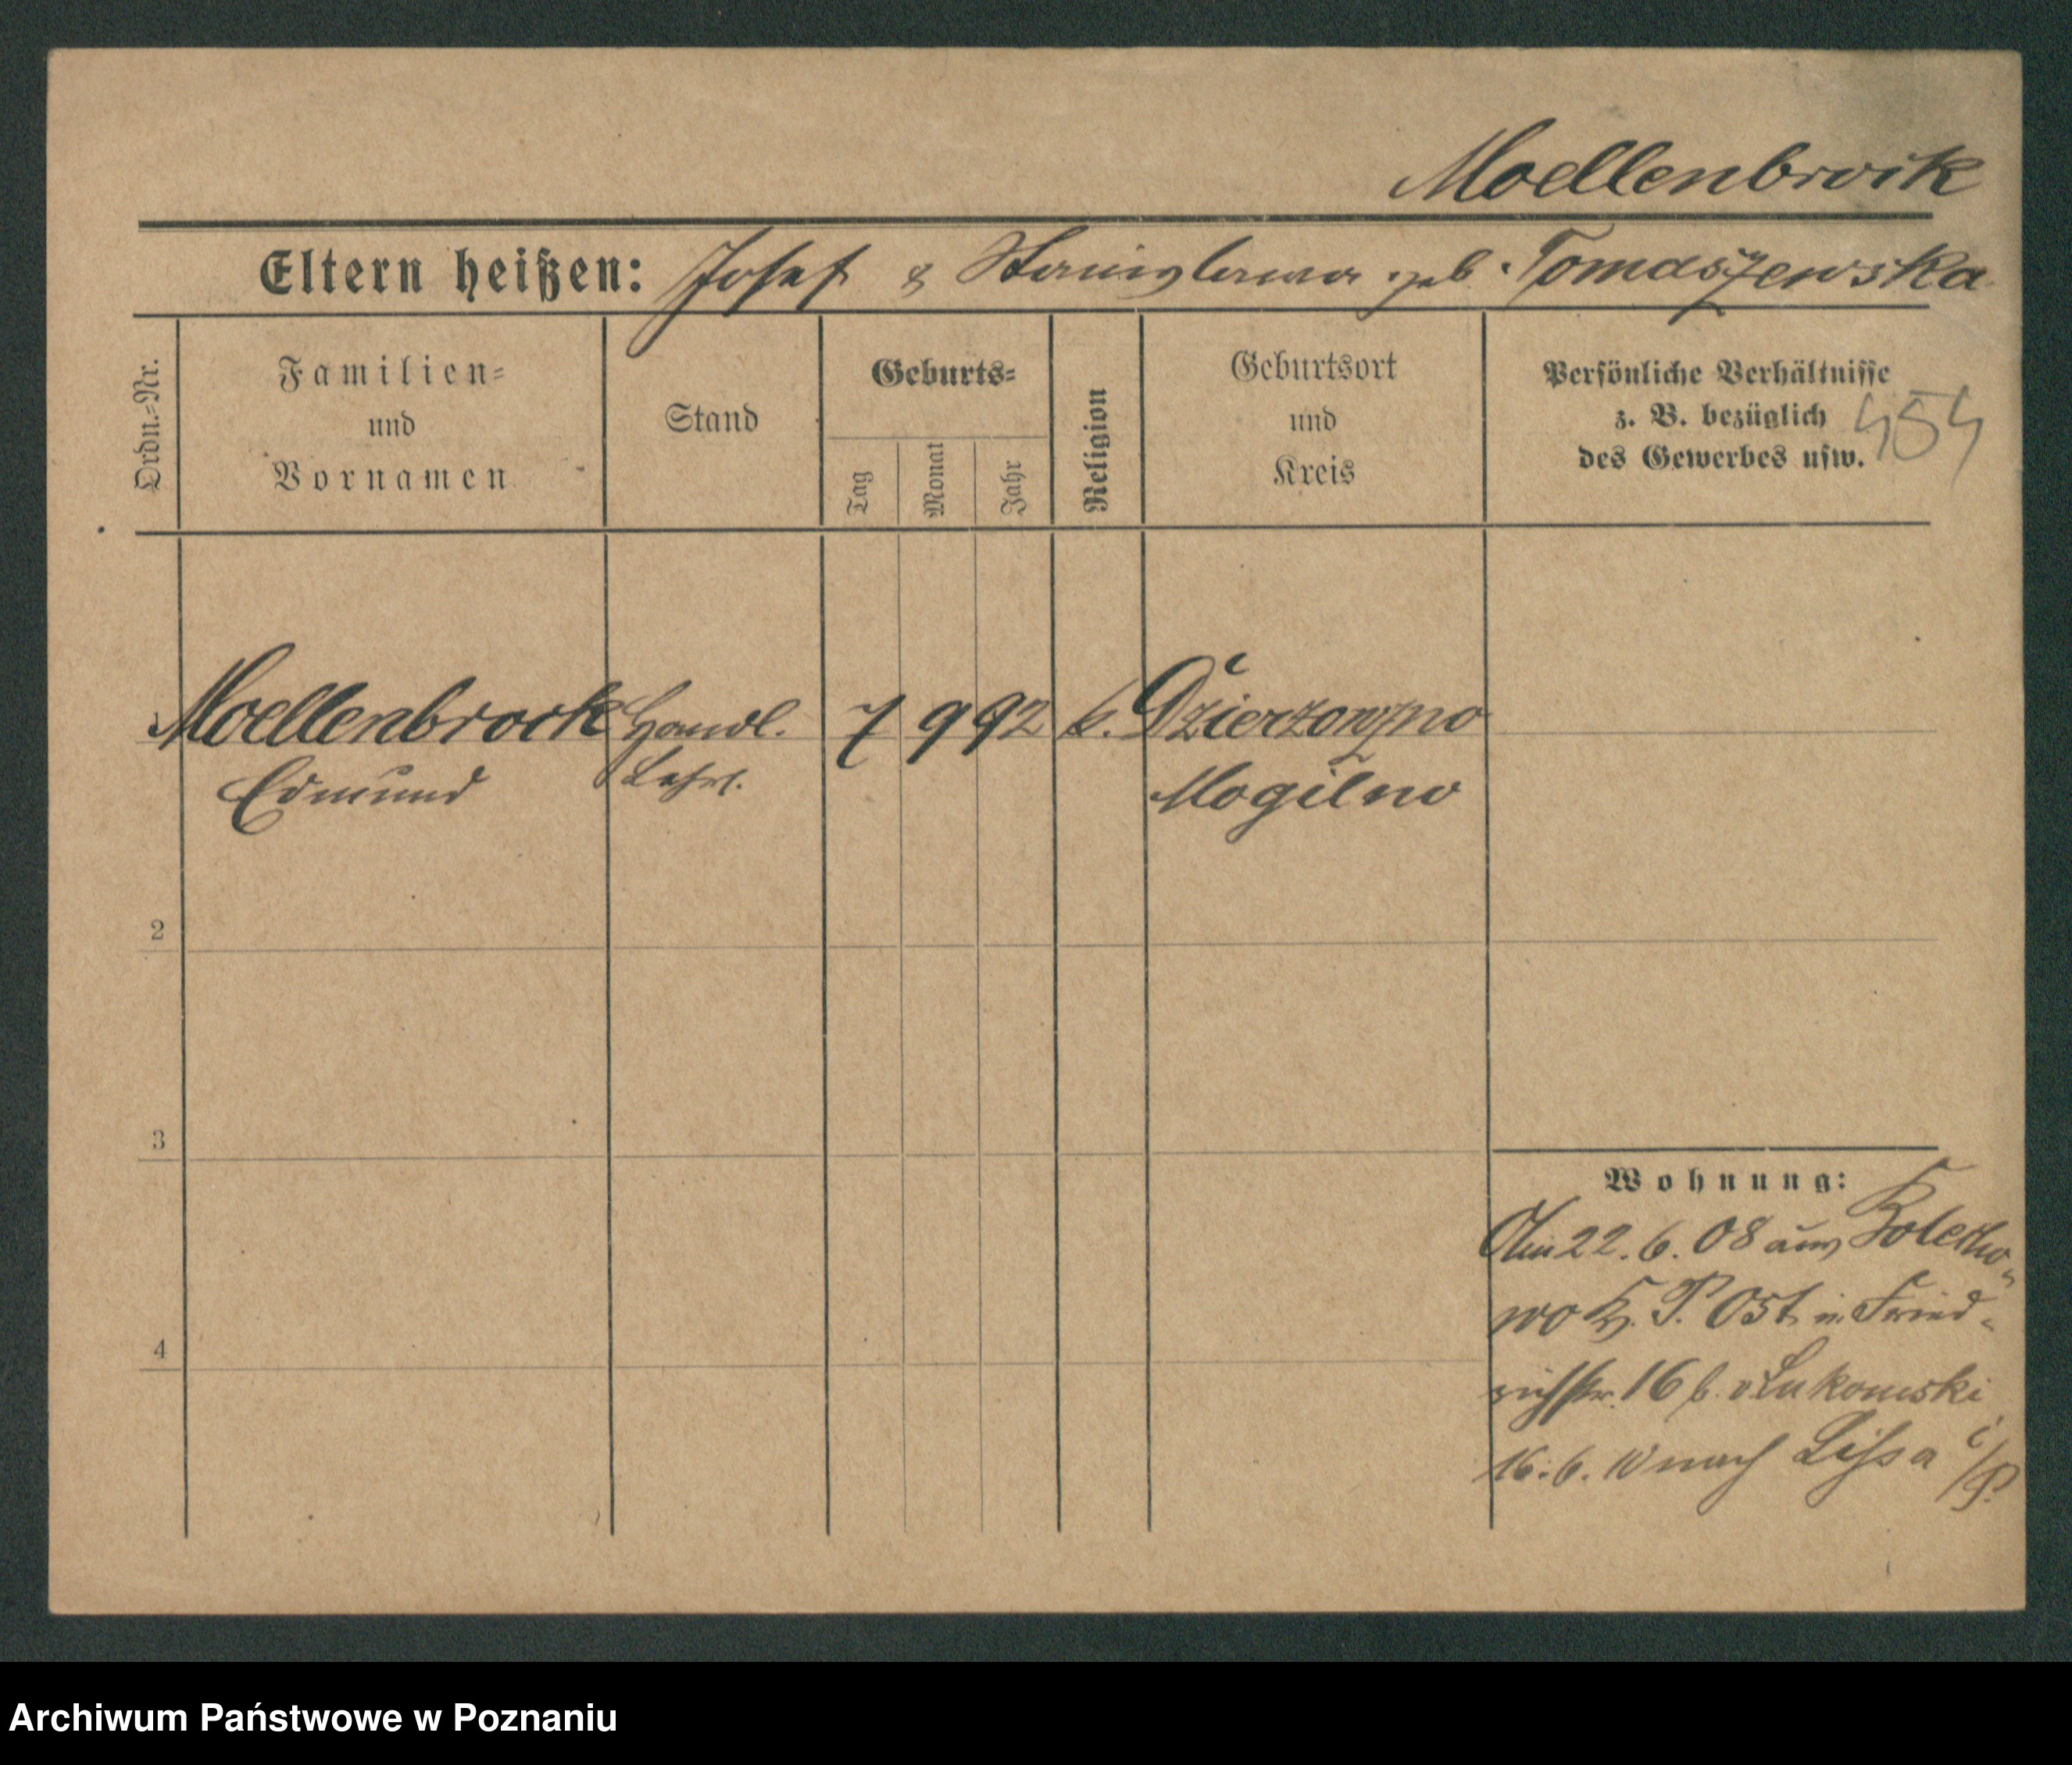 Moellenbrock
Eltern heißen: Josef & Stanislawa geb. Tomaszewska
Ordn.-Nr.
Familien-
und
Vornamen
Stand
Geburts-
Tag
Monat
Jahr
Religion
Geburtsort
und
Kreis
Persönliche Verhältnisse
z. B. bezüglich
des Gewerbes usw.
454
1 Moellenbrock Handl. 7 9 92 k. Dzierzonzno
Edmund Lehrl. Mogilno
2
3
4
Wohnung:
Am 22. 6. 08 aus
wo Kr. P. Ost in Fried-
richstr. 16 b. v Lukomski
16. 6. 10 nach Lissa i/P.
Archiwum Państwowe w Poznaniu